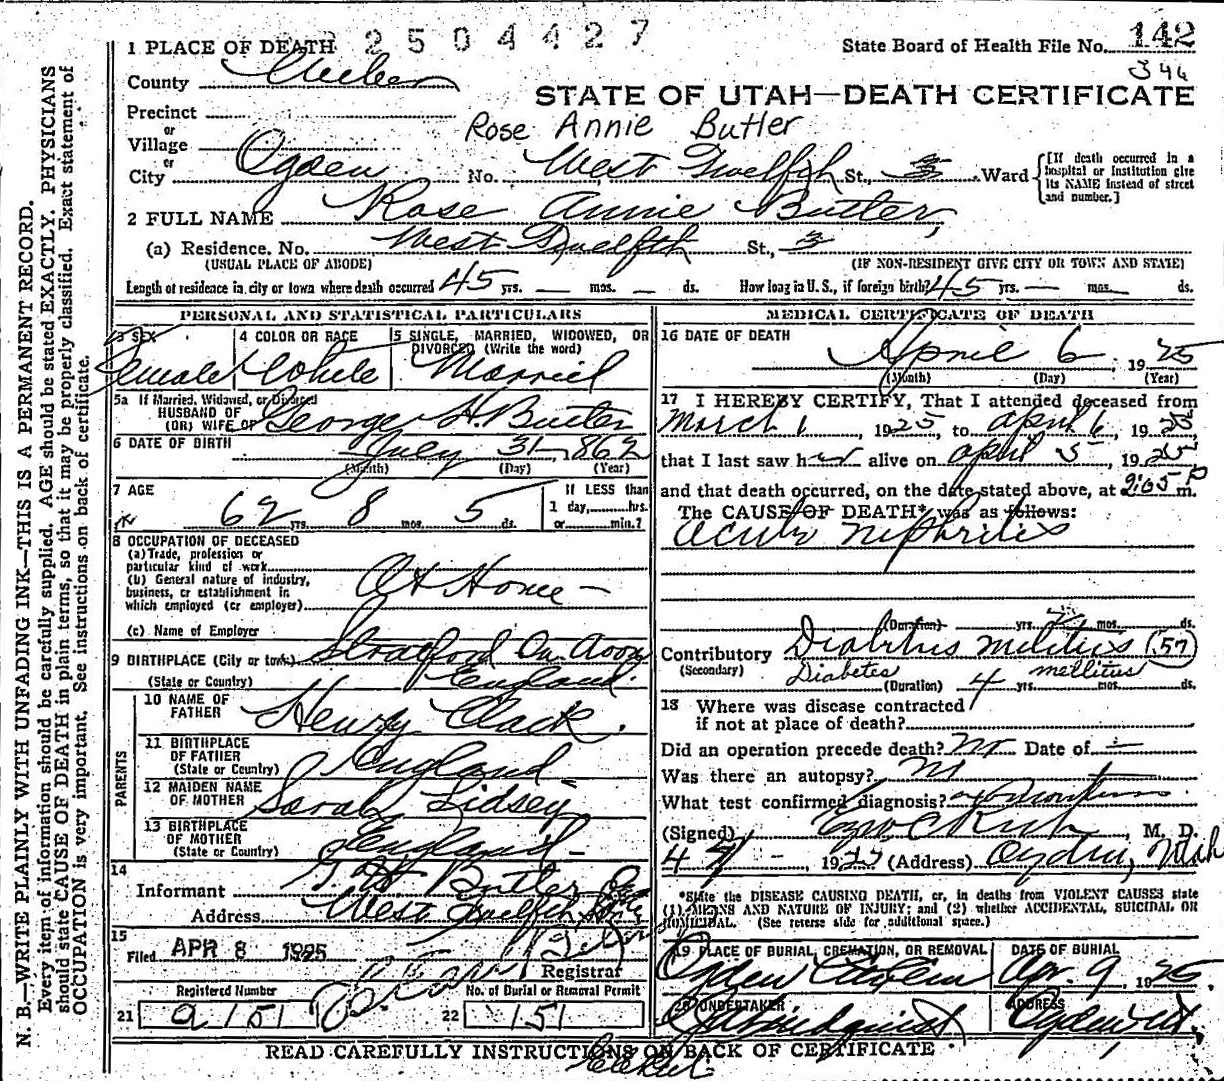 2504427
State Board of Health File No. 142
346
1 PLACE OF DEATH
County Weber
STATE OF UTAH—DEATH CERTIFICATE
Precinct
or
Village
Rose Annie Butler
or
City Ogden No. West Twelfth St., Ward
[If death occurred in a hospital or institution give its NAME instead of street and number.]
2 FULL NAME Rose Annie Butler,
(a) Residence. No. West Twelfth St.,
(USUAL PLACE OF ABODE) (IF NON-RESIDENT GIVE CITY OR TOWN AND STATE)
Length of residence in city or town where death occurred 45 yrs. — mos. — ds. How long in U. S., if foreign birth? 45 yrs. — mos. — ds.
PERSONAL AND STATISTICAL PARTICULARS
3 SEX 4 COLOR OR RACE 5 SINGLE, MARRIED, WIDOWED, OR DIVORCED (Write the word)
Female White Married
5a If Married, Widowed, or Divorced
HUSBAND OF
(OR) WIFE OF George H. Butler
6 DATE OF BIRTH July 31-862
(Month) (Day) (Year)
7 AGE 62 yrs. 8 mos. 5 ds.
If LESS than
1 day, hrs.
or min.?
8 OCCUPATION OF DECEASED
(a) Trade, profession or
particular kind of work
(b) General nature of industry,
business, or establishment in
which employed (or employer) At Home —
(c) Name of Employer
9 BIRTHPLACE (City or town) Stratford On Avon
(State or Country) England.
PARENTS
10 NAME OF FATHER Henry Clack.
11 BIRTHPLACE OF FATHER
(State or Country) England -
12 MAIDEN NAME OF MOTHER Sarah Lidsey
13 BIRTHPLACE OF MOTHER
(State or Country) England -
14
Informant Butler
Address West Twelfth
15
Filed APR 8 1925
Registrar
Registered Number No. of Burial or Removal Permit
21 151 22 151
MEDICAL CERTIFICATE OF DEATH
16 DATE OF DEATH
April 6, 1925
(Month) (Day) (Year)
17 I HEREBY CERTIFY, That I attended deceased from
March 1, 1925, to April 6, 1925,
that I last saw her alive on April 5, 1925
and that death occurred, on the date stated above, at 9:05 P m.
The CAUSE OF DEATH* was as follows:
Acute Nephritis
(Duration) yrs. mos. ds.
Contributory Diabetus Melitus (57)
(Secondary) Diabetes mellitus
(Duration) 4 yrs. mos. ds.
18 Where was disease contracted
if not at place of death?
Did an operation precede death? no Date of —
Was there an autopsy? no
What test confirmed diagnosis?
(Signed) M. D.
4 7 - 1925 (Address) Ogden, Utah
*State the DISEASE CAUSING DEATH, or, in deaths from VIOLENT CAUSES state
(1) MEANS AND NATURE OF INJURY; and (2) whether ACCIDENTAL, SUICIDAL OR
HOMICIDAL. (See reverse side for additional space.)
19 PLACE OF BURIAL, CREMATION, OR REMOVAL DATE OF BURIAL
Ogden Apr. 9, 1925
20 UNDERTAKER ADDRESS
Ogden Ut.
READ CAREFULLY INSTRUCTIONS ON BACK OF CERTIFICATE
N. B.—WRITE PLAINLY WITH UNFADING INK—THIS IS A PERMANENT RECORD.
Every item of information should be carefully supplied. AGE should be stated EXACTLY. PHYSICIANS
should state CAUSE OF DEATH in plain terms, so that it may be properly classified. Exact statement of
OCCUPATION is very important. See instructions on back of certificate.